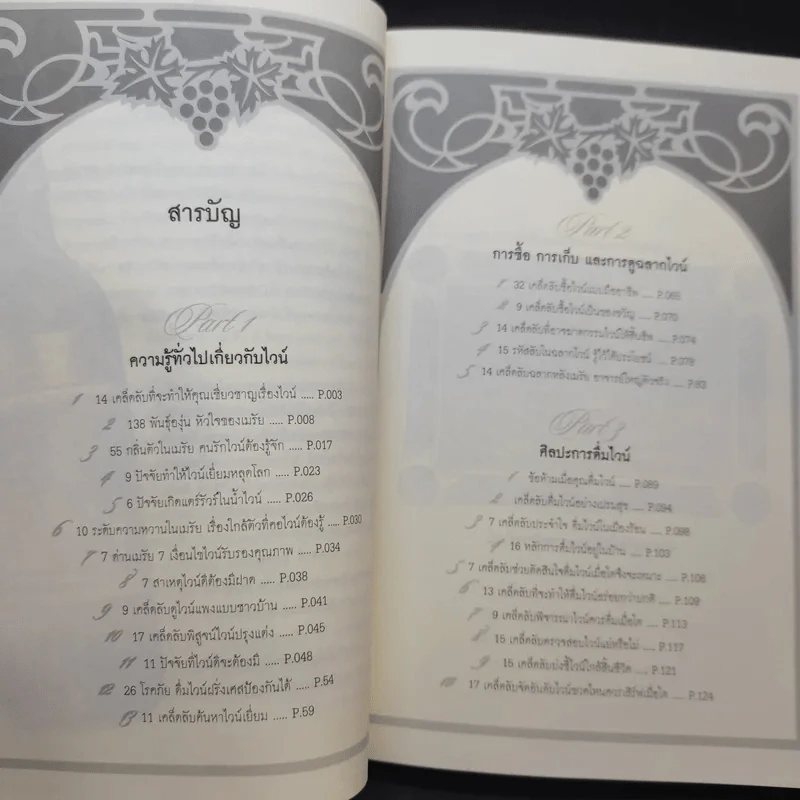 สารบัญ
Part 1
ความรู้ทั่วไปเกี่ยวกับไวน์
1 14 เคล็ดลับที่จะทำให้คุณเชี่ยวชาญเรื่องไวน์ ..... P.003
2 138 พันธุ์องุ่น หัวใจของเมรัย ..... P.008
3 55 กลิ่นตัวในเมรัย คนรักไวน์ต้องรู้จัก ..... P.017
4 9 ปัจจัยทำให้ไวน์เยี่ยมหลุดโลก ..... P.023
5 6 ปัจจัยเกิดแตร์รัวร์ในน้ำไวน์ ..... P.026
6 10 ระดับความหวานในเมรัย เรื่องใกล้ตัวที่คอไวน์ต้องรู้ ..... P.030
7 7 ด่านเมรัย 7 เงื่อนไขไวน์รับรองคุณภาพ ..... P.034
8 7 สาเหตุไวน์ดีต้องมีฝาด ..... P.038
9 9 เคล็ดลับดูไวน์แพงแบบชาวบ้าน ..... P.041
10 17 เคล็ดลับพิสูจน์ไวน์ปรุงแต่ง ..... P.045
11 11 ปัจจัยที่ไวน์ดีจะต้องมี ..... P.048
12 26 โรคภัย ดื่มไวน์ฝรั่งเศสป้องกันได้ ..... P.54
13 11 เคล็ดลับค้นหาไวน์เยี่ยม ..... P.59
Part 2
การซื้อ การเก็บ และการดูฉลากไวน์
1 32 เคล็ดลับซื้อไวน์แบบมืออาชีพ ..... P.065
2 9 เคล็ดลับซื้อไวน์เป็นของขวัญ ..... P.070
3 14 เคล็ดลับที่อาจฆาตกรรมไวน์ให้สิ้นชีพ ..... P.074
4 15 รหัสลับในฉลากไวน์ รู้ไว้ได้ประโยชน์ ..... P.078
5 14 เคล็ดลับฉลากหลังเมรัย อาจารย์ใหญ่ตัวจริง ..... P.83
Part 3
ศิลปะการดื่มไวน์
1 ข้อห้ามเมื่อคุณดื่มไวน์ ..... P.089
2 เคล็ดลับดื่มไวน์อย่างแสนสุข ..... P.094
3 7 เคล็ดลับประจำใจ ดื่มไวน์ในเมืองร้อน ..... P.098
4 16 หลักการดื่มไวน์อยู่ในบ้าน ..... P.103
5 7 เคล็ดลับช่วยตัดสินใจดื่มไวน์เมื่อใดจึงจะเหมาะ ..... P.106
6 13 เคล็ดลับที่จะทำให้ดื่มไวน์อร่อยกว่าปกติ ..... P.109
7 9 เคล็ดลับพิจารณาไวน์ควรดื่มเมื่อใด ..... P.113
8 15 เคล็ดลับตรวจสอบไวน์แย่หรือไม่ ..... P.117
9 15 เคล็ดลับบ่งชี้ไวน์ใกล้สิ้นชีวิต ..... P.121
10 17 เคล็ดลับจัดอันดับไวน์ขวดไหนควรเสิร์ฟเมื่อใด ..... P.124